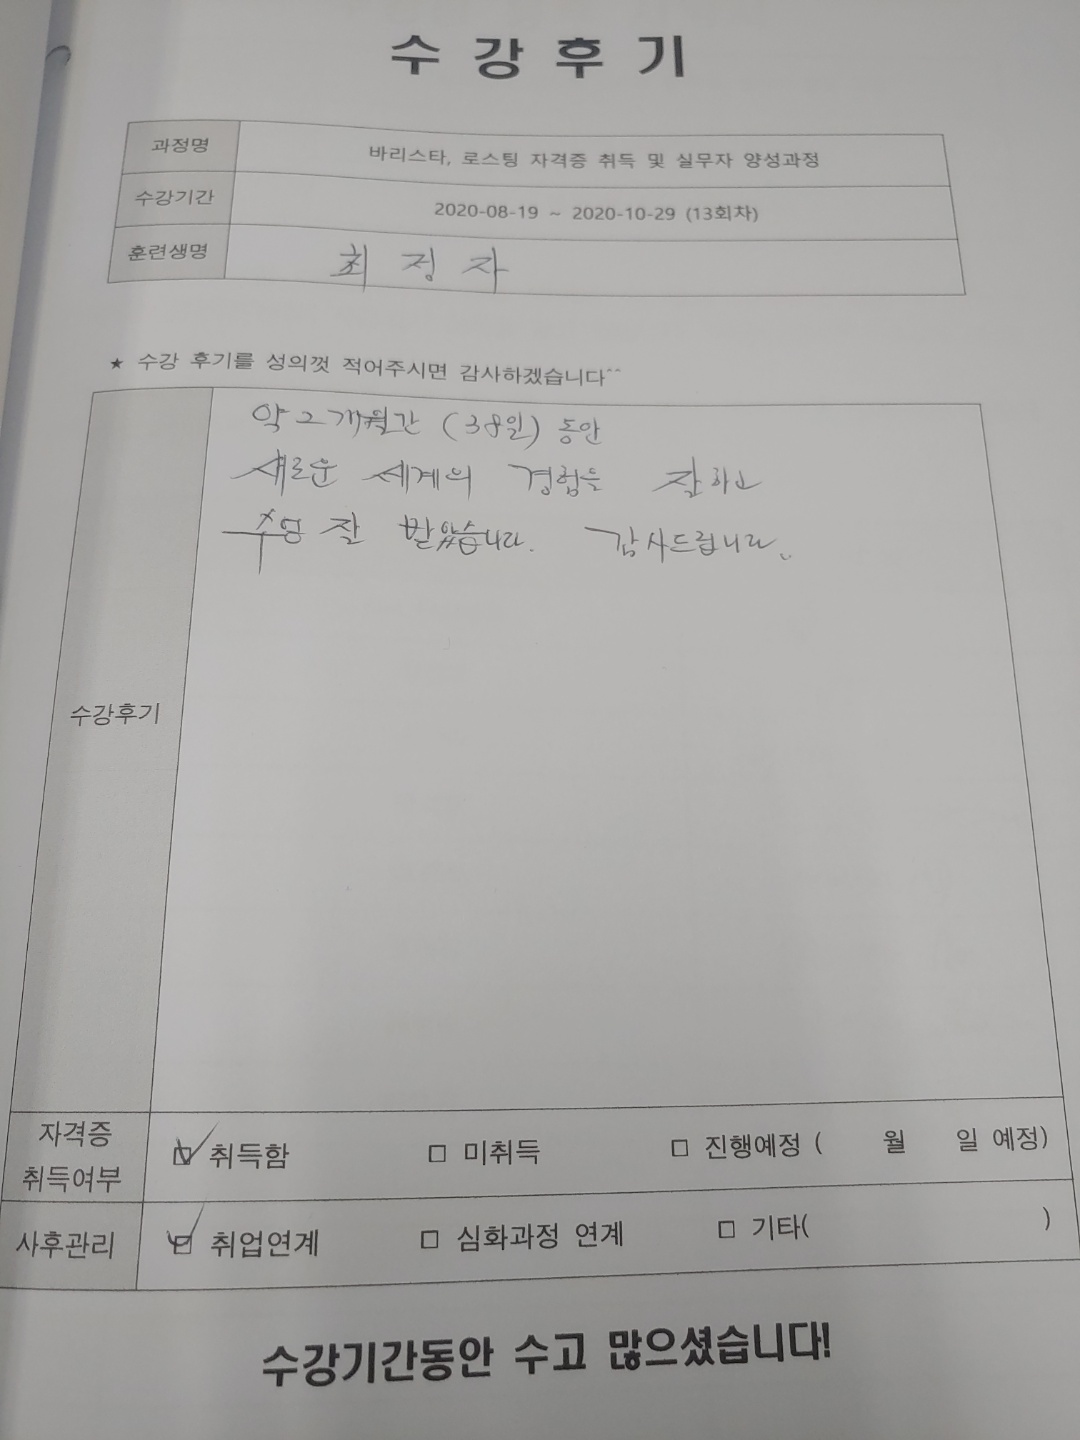 수 강 후 기
과정명 바리스타, 로스팅 자격증 취득 및 실무자 양성과정
수강기간 2020-08-19 ~ 2020-10-29 (13회차)
훈련생명 최 정 자
★ 수강 후기를 성의껏 적어주시면 감사하겠습니다^^
약 2개월간 (38일) 동안
새로운 세계의 경험을 잘하고
잘 받았습니다. 감사드립니다.
수강후기
자격증 취득여부 ☑ 취득함 □ 미취득 □ 진행예정 ( 월 일 예정)
사후관리 ☑ 취업연계 □ 심화과정 연계 □ 기타( )
수강기간동안 수고 많으셨습니다!